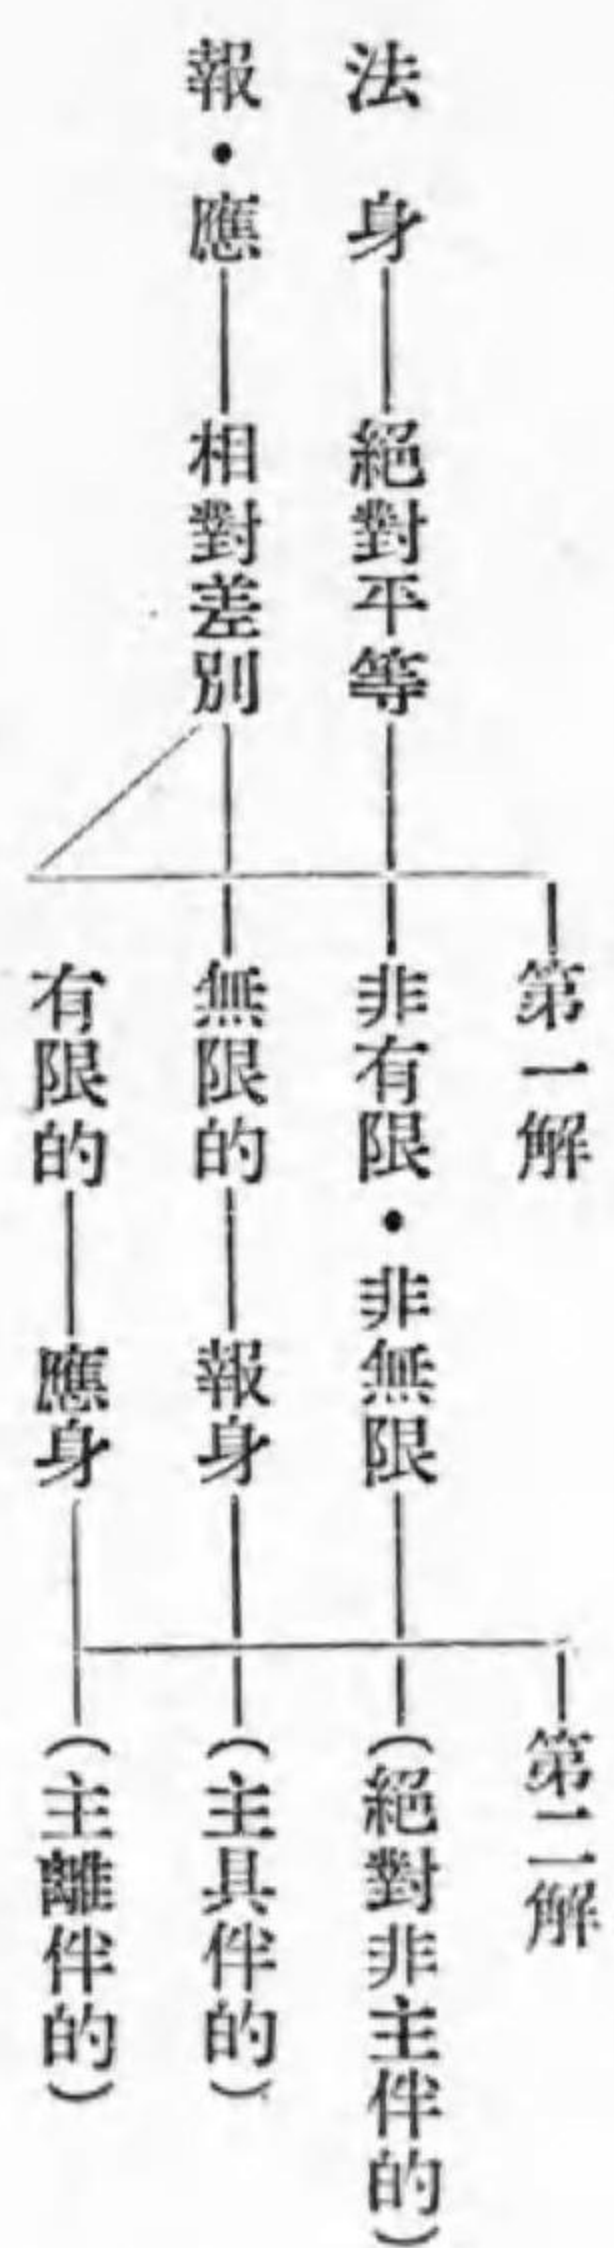 第一解
第二解
法身
絕對平等
非有限・非無限
(絕對非主伴的)
報・應
相對差別
無限的
報身
(主具伴的)
有限的
應身
(主離伴的)